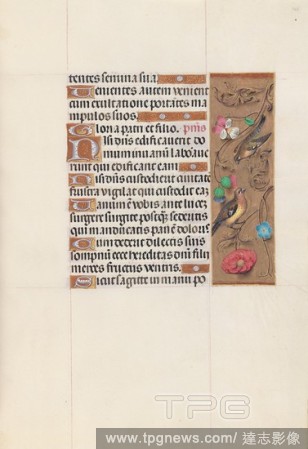 tentes semina sua.
Venientes autem venient
cum exultatione portātes ma
nipulos suos.
Gloria patri et filio. p̄mꝰ
Nisi dn̄s edificaverit do
mum in vanū laborave
runt qui edificant eam
Nisi dn̄s custodierit civitatē
frustra vigilat qui custodit eaʒ
Vanum ē vobis ante lucē
surgere surgite posꝗ̄ sederitis
qui manducatis panē doloris
Cum dederit dilectis suis
sompnū ecce hereditas dn̄i filij
merces fructus ventris.
Sicut sagitte in manu po
TPG
www.tpgnews.com/ 達志影像